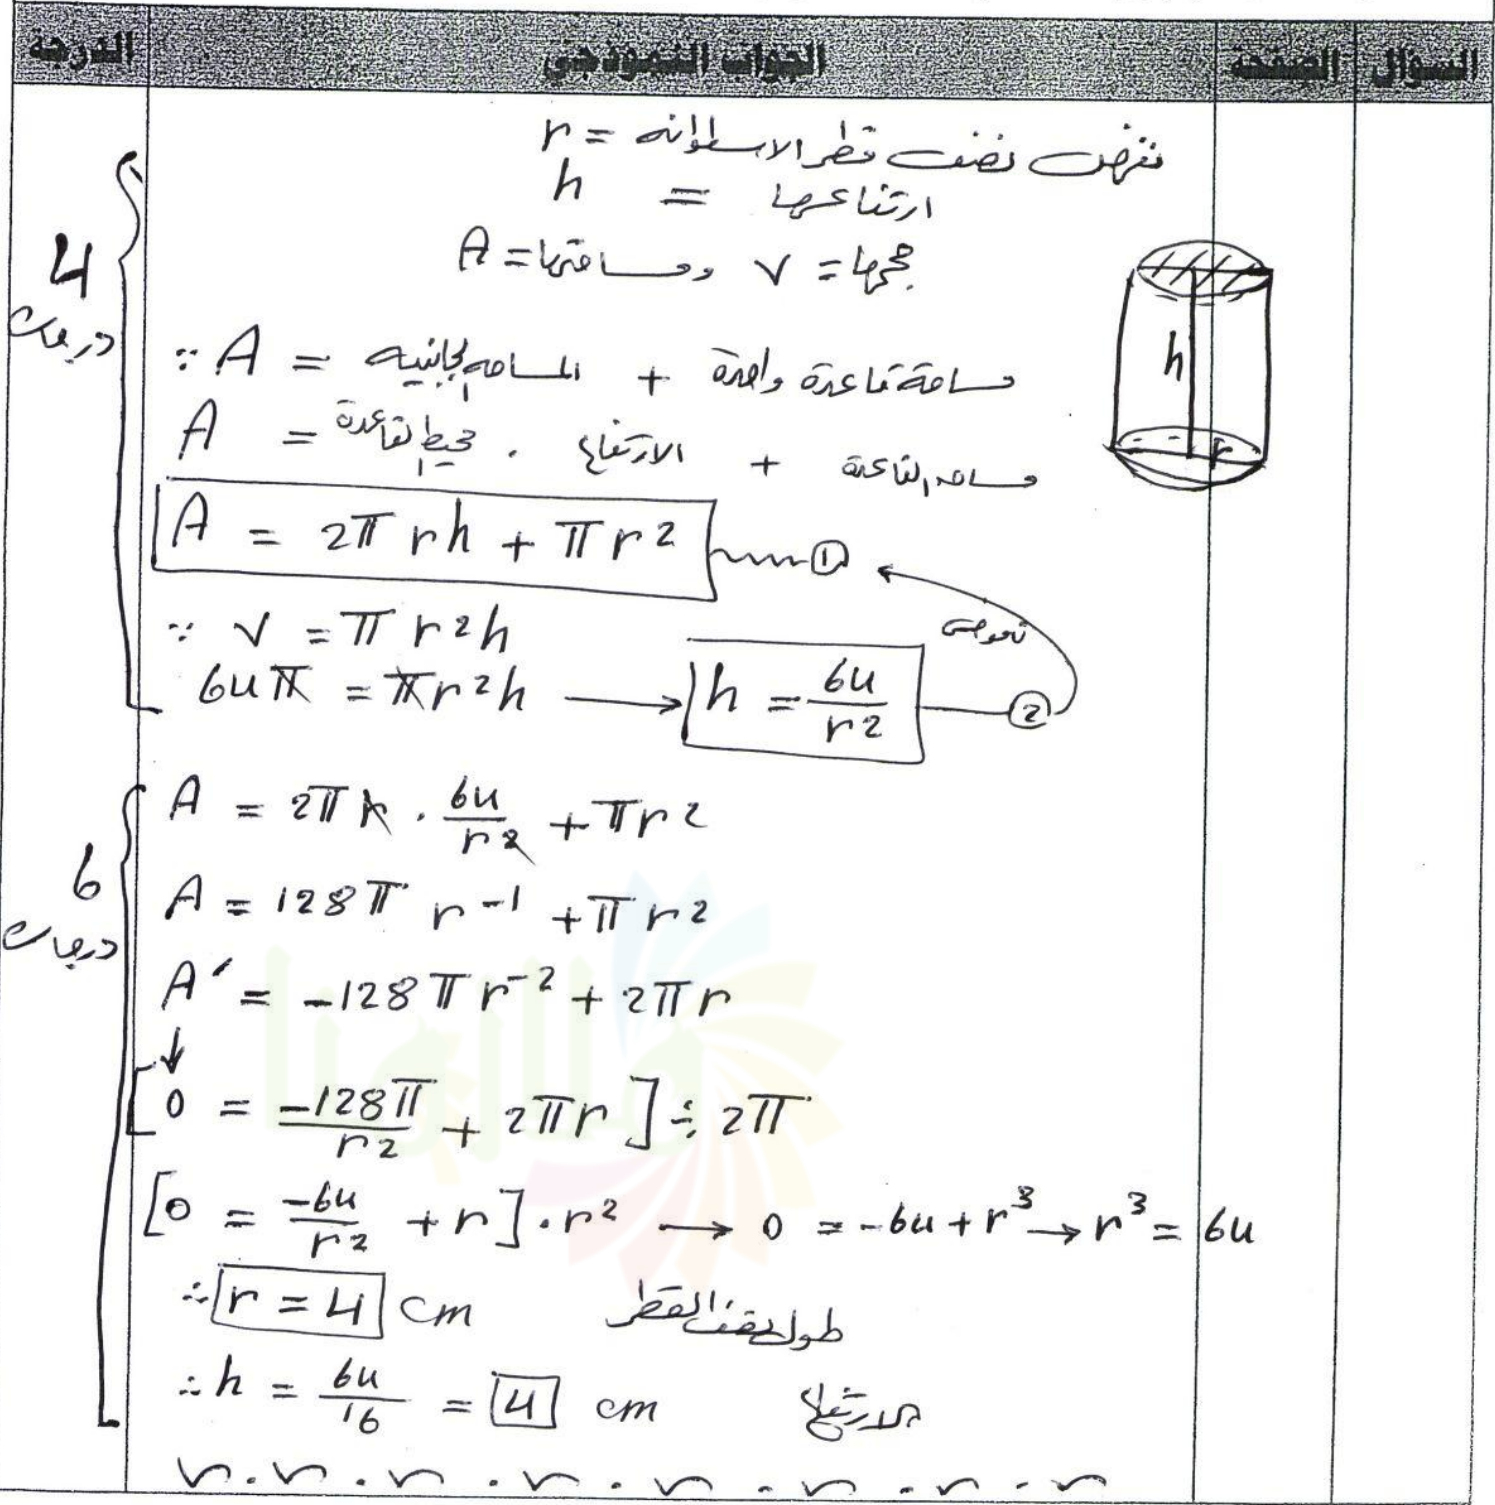 السؤال الصفحة الجواب النموذجي الدرجة
نفرض نصف قطر الاسطوانه = r
ارتفاعها = h
حجمها = v ومساحتها = A
4 درجات
∵ A = المساحه الجانبيه + مساحة قاعدة واحدة
A = محيط القاعدة . الارتفاع + مساحه القاعدة
A = 2π r h + π r² ①
تعويض
∵ v = π r² h
64π = π r² h → h = 64/r² ②
h
r
6 درجات
A = 2π r . 64/r² + πr²
A = 128π r⁻¹ + π r²
A′ = -128π r⁻² + 2π r
↓
[0 = -128π/r² + 2πr] ÷ 2π
[0 = -64/r² + r] . r² → 0 = -64 + r³ → r³ = 64
∴ r = 4 cm طول نصف القطر
∴ h = 64/16 = 4 cm الارتفاع